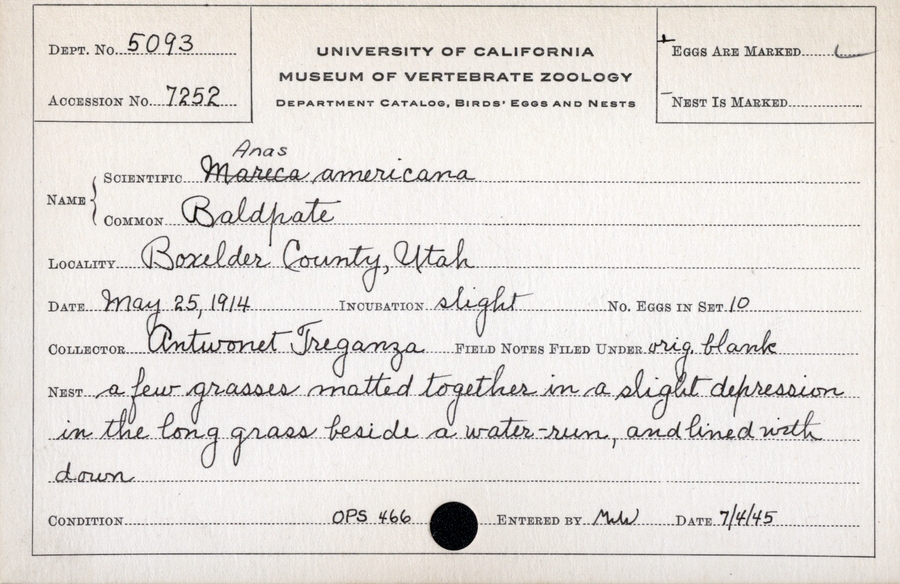 Dept. No. 5093
Accession No. 7252
UNIVERSITY OF CALIFORNIA
MUSEUM OF VERTEBRATE ZOOLOGY
Department Catalog, Birds' Eggs and Nests
Eggs Are Marked
Nest Is Marked
Anas
Name { Scientific Mareca americana
Common Baldpate
Locality Boxelder County, Utah
Date May 25, 1914 Incubation slight No. Eggs in Set 10
Collector Antwonet Treganza Field Notes Filed Under orig. blank
Nest a few grasses matted together in a slight depression
in the long grass beside a water-run, and lined with
down
Condition OPS 466 Entered by Date 7/4/45